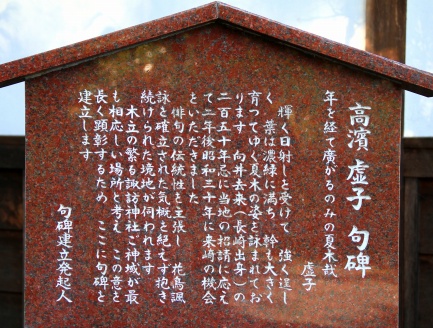 高濱 虚子 句碑
年を経て廣がるのみの夏木哉
虚子
輝く日射しを受けて 強く逞し
く 葉は濃緑に満ち 幹も大きく
育ってゆく夏木の姿を詠まれてお
ります 向井去来(長崎出身)の
二百五十年忌に当地の招請に応え
て二年後昭和三十年に来崎の機会
をいただきました
俳句の伝統性を主張し 花鳥諷
詠を確立された気概を絶えず抱き
続けられた境地が伺われます
木立の繁る諏訪神社ご神域が最
も相応しい場所と考え この意を
長く顕彰するため ここに句碑を
建立します
句碑建立発起人